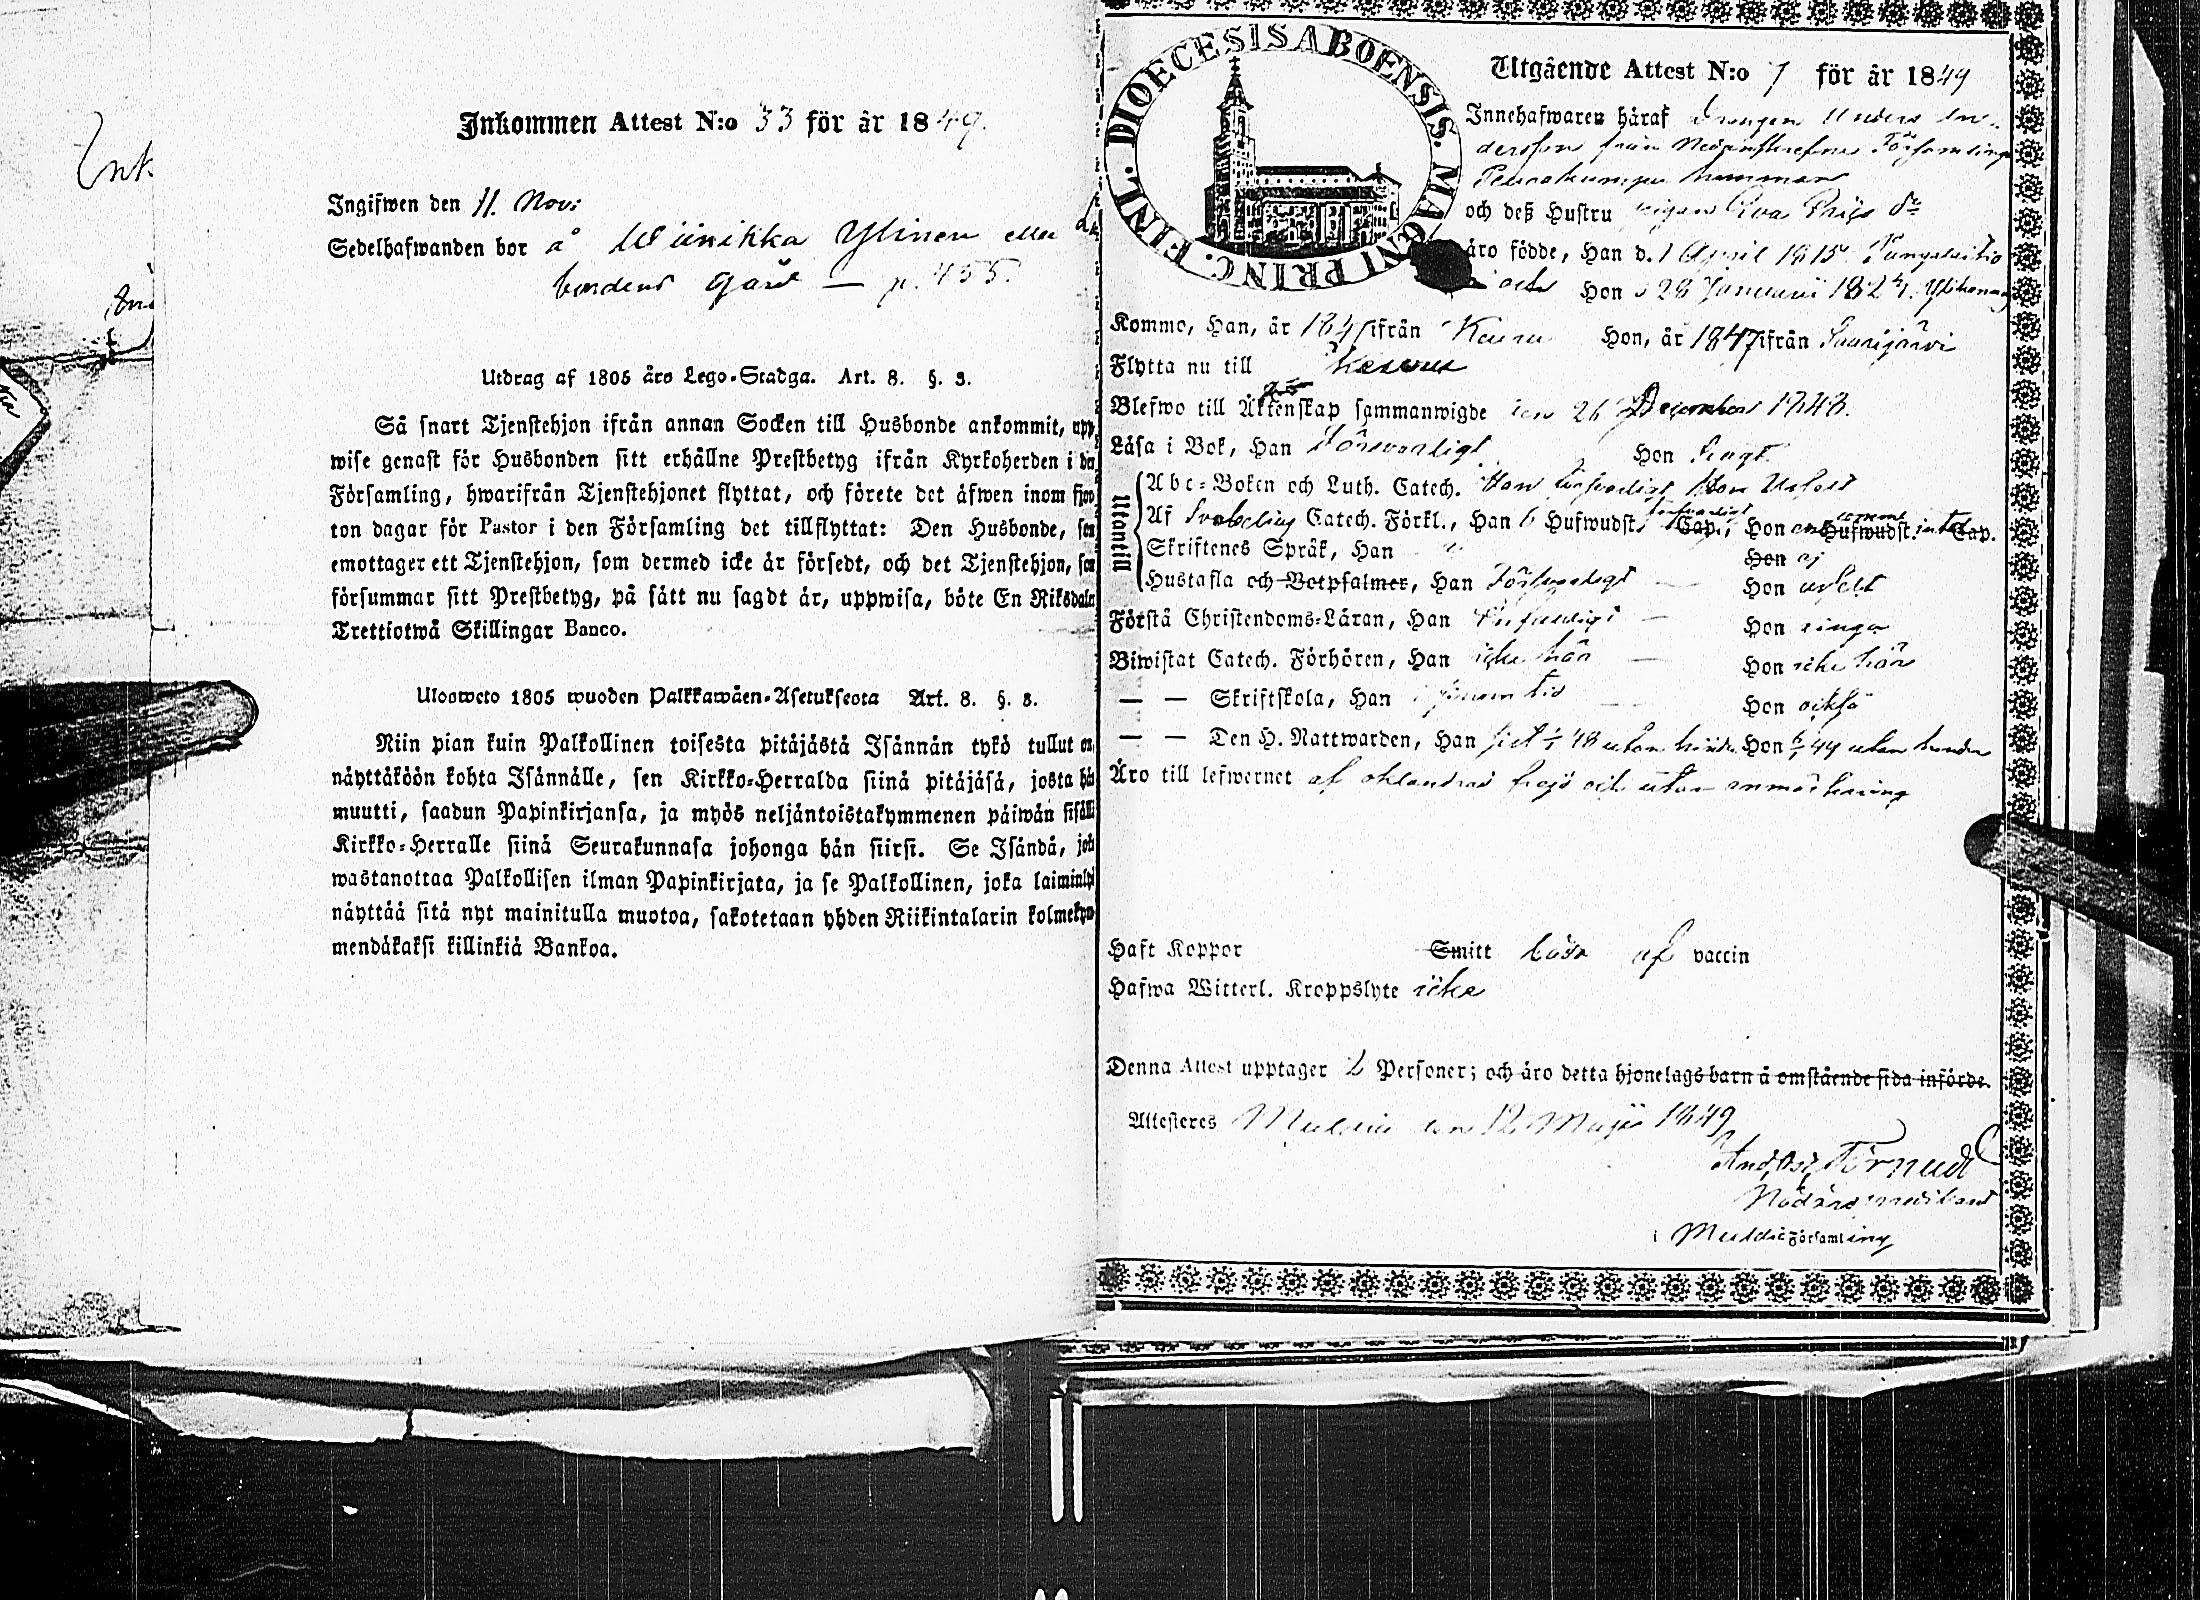 Inkommen Attest N:o 33 för år 1849.
Ingifwen den 11. Nov:
Sedelhafwanden bor å Wiinikka Ylinen eller
bordens gård — p. 455.
Utdrag af 1805 års Lego-Stadga. Art. 8. §. 3.
Så snart Tjenstehjon ifrån annan Socken till Husbonde ankommit, upp-
wise genast för Husbonden sitt erhållne Prestbetyg ifrån Kyrkoherden i den
Församling, hwarifrån Tjenstehjonet flyttat, och förete det äfwen inom fjor-
ton dagar för Pastor i den Församling det tillflyttat: Den Husbonde, som
emottager ett Tjenstehjon, som dermed icke är försedt, och det Tjenstehjon, som
försummar sitt Prestbetyg, på sätt nu sagdt är, uppwisa, böte En Riksdaler
Trettiotwå Skillingar Banco.
Ulosweto 1805 wuoden Palkkawäen-Asetuksesta Art. 8. §. 3.
Niin pian kuin Palkollinen toisesta pitäjästä Isännän tykö tullut on,
näyttäköön kohta Isännälle, sen Kirkko-Herralda siinä pitäjäsä, josta hän
muutti, saadun Papinkirjansa, ja myös neljäntoistakymmenen päiwän sisällä
Kirkko-Herralle siinä Seurakunnasa johonga hän siirsi. Se Isändä, joka
wastanottaa Palkollisen ilman Papinkirjata, ja se Palkollinen, joka laiminlyö
näyttää sitä nyt mainitulla muotoa, sakotetaan yhden Riikintalarin kolmekym-
mendäkaksi killinkiä Bankoa.
DIOECESIS ABOENSIS. MAGNI PRINC. FINL.
Utgående Attest N:o 7 för år 1849
Innehafwaren häraf Drengen Anders An-
dersson från Församlings
hemman
och deß Hustru pigan Eva
äro födde, Han d. 1 April 1815
och Hon d 28 Januarii
Kommo, Han, år ifrån Keuru Hon, år 1847 ifrån Saarijärvi
Flytta nu till
Blefwo till Äktenskap sammanwigde den 26 December 1848.
Läsa i Bok, Han Försvarligt Hon Svagt
Utantill
Abc-Boken och Luth. Catech. Han försvarligt Hon Uselt
Af Svebelius Catech. Förkl., Han 6 Hufwudst. Cap., Hon Hufwudst. intet Cap.
Skriftenes Språk, Han Hon ej
Hustafla och Botpsalmer, Han Försvarligt — Hon uselt
Förstå Christendoms-Läran, Han — Hon ringa
Biwistat Catech. Förhören, Han icke här — Hon icke här
— — Skriftskola, Han i sinom tid Hon också
— — Den H. Nattwarden, Han sist 48 utan hinder Hon 49 utan hinder
Äro till lefwernet af oklandrad frejd och utan anmärkning
Haft Koppor Smitt båda af vaccin
Hafwa Witterl. Kroppslyte icke
Denna Attest upptager 2 Personer; och äro detta hjonelags barn å omstående sida införde.
Attesteras Multia den 12 Maji 1849
Törnudd
i Multia Församling